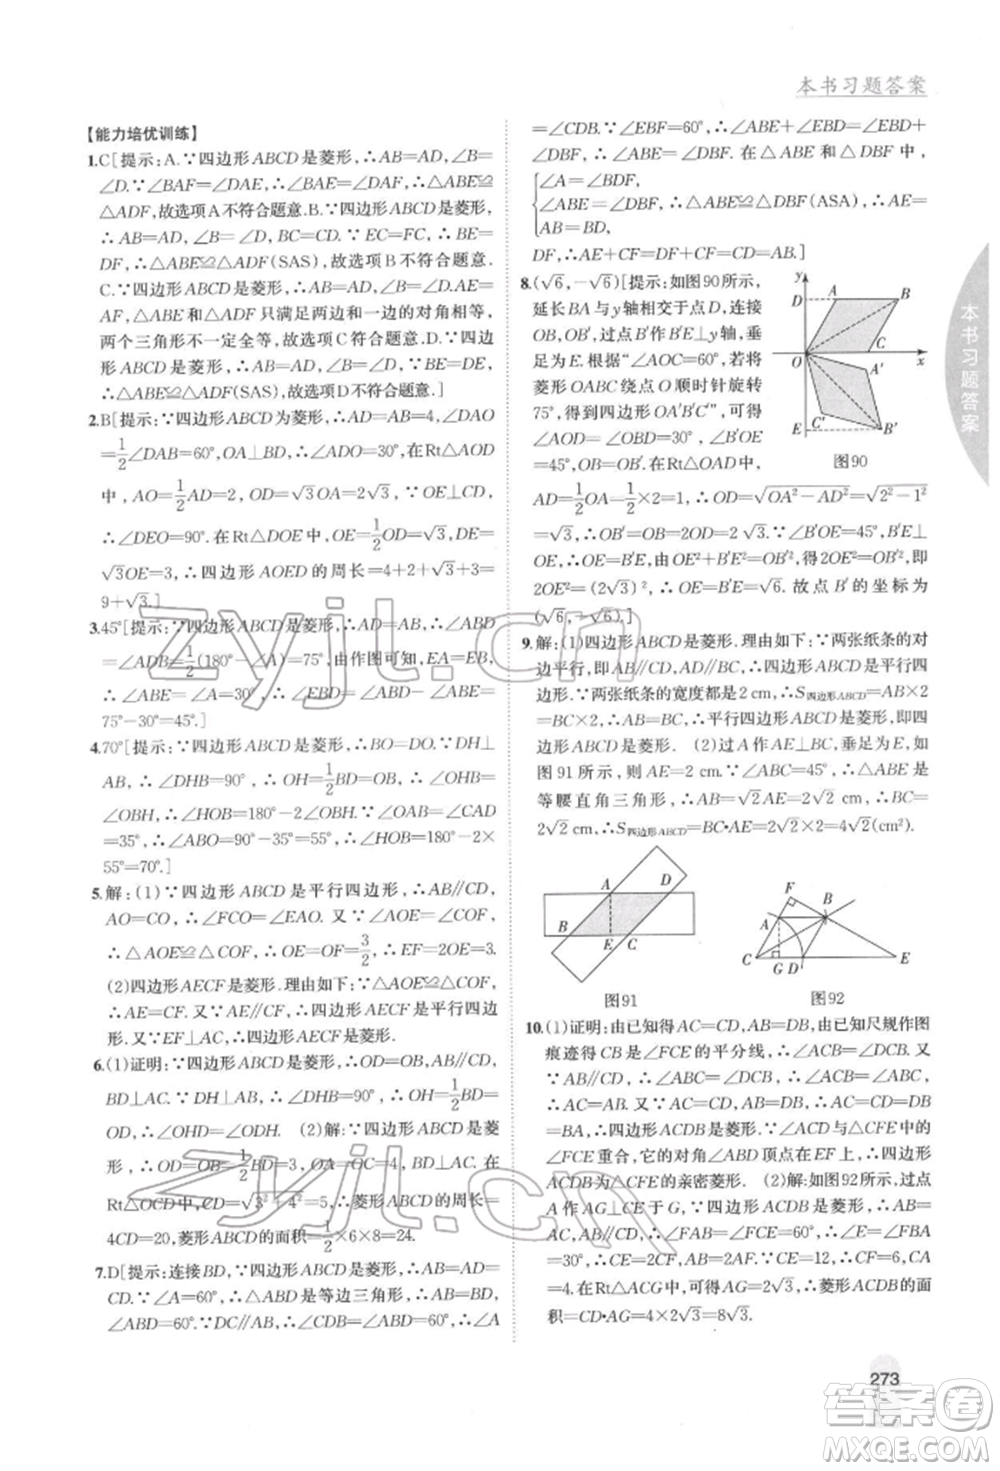 本书习题答案
【能力培优训练】
1.C[提示:A.∵四边形ABCD是菱形,∴AB=AD,∠B=
∠D.∵∠BAF=∠DAE,∴∠BAE=∠DAF,∴△ABE≌
△ADF,故选项A不符合题意.B.∵四边形ABCD是菱形,
∴AB=AD,∠B=∠D,∴BC=CD.∵EC=FC,∴BE=
DF,∴△ABE≌△ADF(SAS),故选项B不符合题意.
∴△ABE和△ADF只满足两边和一边的对角相等,
两个三角形不一定全等,故选项C符合题意.
∴△ABE≌△ADF(SAS),故选项D不符合题意.]
2.B[提示:∵四边形ABCD为菱形,∴AD=AB=4,∠DAO
=1/2∠DAB=60°,OA⊥OD,∴∠AOD=90°.在Rt△AOD
中,AO=1/2AD=2,∴OD=2√3,∴OE=1/2OD=√3,
∴∠DEO=90°.在Rt△DOE中,DE=
√3OE=3,∴四边形AOED的周长=4+2+√3+3=
9+√3.]
3.45°[提示:∵四边形ABCD是菱形,∴AD=AB,∴∠ABD
=∠ADB=1/2(180°-∠A)=75°,由作图可知,EA=EB,
∴∠ABE=∠A=30°,∴∠EBD=∠ABD-∠ABE=
75°-30°=45°.]
4.70°[提示:∵四边形ABCD是菱形,∴BO=DO.∵DH⊥
AB,∴∠DHB=90°,∴OH=1/2BD=OB,∴∠OHB=
∠OBH,∴∠HOB=180°-2∠OBH.∵∠OAB=∠CAD
=35°,∴∠ABO=90°-35°=55°,∴∠HOB=180°-2×
55°=70°.]
5.解:(1)∵四边形ABCD是平行四边形,∴AD∥BC,
AO=CO,∴∠FCO=∠EAO.又∵∠AOE=∠COF,
∴△AOE≌△COF,∴OE=OF=3/2,∴EF=2OE=3.
(2)四边形AECF是菱形.理由如下:∵△AOE≌△COF,
∴AE=CF.又∵AE∥CF,∴四边形AECF是平行四边
形.又∵EF⊥AC,∴四边形AECF是菱形.
6.(1)证明:∵四边形ABCD是菱形,∴OD=OB,AB∥CD,
BD⊥AC.∵DH⊥AB,∴∠DHB=90°,∴OH=1/2BD=
OD,∴∠OHD=∠ODH. (2)解:∵四边形ABCD是菱
形,∴OD=OB=1/2BD=3,OC=1/2AC=4,BD⊥AC.在
Rt△OCD中,CD=√3²+4²=5,∴菱形ABCD的周长=
4CD=20,菱形ABCD的面积=1/2×6×8=24.
7.D[提示:连接BD,∵四边形ABCD是菱形,∴AD=AB=
CD.∵∠A=60°,∴△ABD是等边三角形,∴AB=BD,
∠ABD=60°.∵DC∥AB,∴∠CDB=∠ABD=60°,∴∠A
=∠CDB.∵∠EBF=60°,∴∠ABE+∠EBD=∠EBD+
∠DBF,∴∠ABE=∠DBF.在△ABE和△DBF中,
∠A=∠BDF,
∠ABE=∠DBF,∴△ABE≌△DBF(ASA),∴AE=
AB=BD,
DF,∴DE+DF=DE+AE=AD.]
8.(√6,-√6)[提示:如图90所示,
延长BA与y轴相交于点D,连接
OB,OB′,过点B′作B′E⊥y轴,垂
足为E.根据“∠AOC=60°,若将
菱形OABC绕点O顺时针旋转
75°,得到四边形OA′B′C′”,可得
∠AOD=∠OBD=30°,∠B′OE
=45°,∴OB=2OD.在Rt△AOD中,
AD=1/2OA=1/2×2=1,∴OD=√OA²-AD²=√2²-1²=
√3,∴OB′=OB=2OD=2√3.∵∠B′OE=45°,B′E⊥
OE,∴OE=B′E,由OE²+B′E²=OB′²,可得
2OE²=(2√3)²,∴OE=B′E=√6.故点B′的坐标为
(√6,-√6).]
y
D
A
B
O
C
x
A′
C′
E
B′
图90
9.解:(1)四边形ABCD是菱形.理由如下:∵两张纸条的对
边平行,即AB∥CD,AD∥BC,∴四边形ABCD是平行四
边形.∵两张纸条的宽度都是2 cm,∴S四边形ABCD=AB×2
=BC×2,∴AB=BC,∴平行四边形ABCD是菱形,即四
边形ABCD是菱形. (2)过A作AE⊥BC,垂足为E,如
图91所示,则AE=2 cm.∵∠ABC=45°,∴△ABE是
等腰直角三角形,∴AB=√2AE=2√2 cm,∴BC=
2√2 cm,∴S四边形ABCD=BC·AE=2√2×2=4√2(cm²).
A
D
B
E
C
图91
F
A
B
C
G
D
E
图92
10.(1)证明:由已知得AC=CD,AB=DB,由已知尺规作图
痕迹得CB是∠FCE的平分线,∴∠ACB=∠DCB.又
∵AB∥CD,∴∠ABC=∠DCB,∴∠ACB=∠ABC,
∴AC=AB.又∵AC=CD,AB=DB,∴AC=CD=DB=
BA,∴四边形ACDB是菱形.又∵∠ACD与△CFE中的
∠FCE重合,它的对角∠ABD顶点在EF上,∴四边形
ACDB为△CFE的亲密菱形. (2)解:如图92所示,过
A作AG⊥CD于G,∵四边形ACDB是菱形,
∴AB∥CE,∴∠FAB=∠FCE=60°,∴∠E=∠FBA
=30°,∴CE=2CF,∴CF=6,
4.在Rt△ACG中,可得AG=2√3,∴菱形ACDB的面
积=CD·AG=4×2√3=8√3.
本书习题答案
273
zyjl.cn
zyjl.cn
答案圈
MXQE.COM